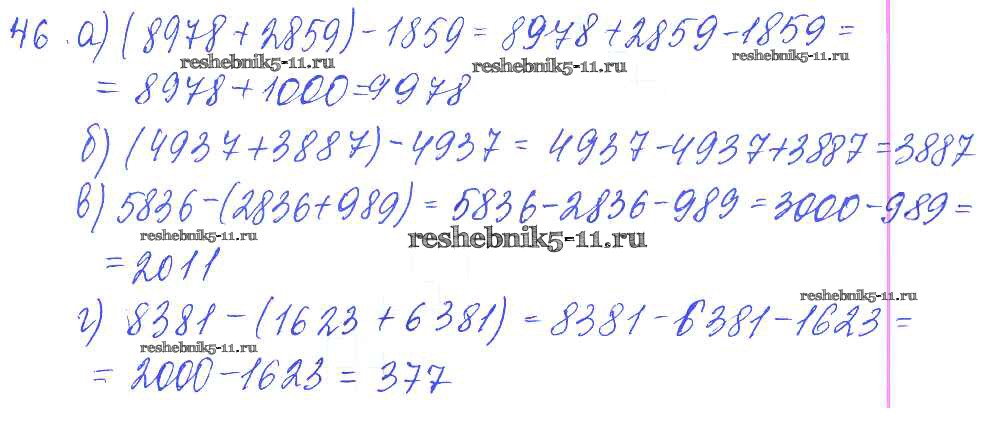 46. а) (8978 + 2859) - 1859 = 8978 + 2859 - 1859 =
reshebnik5-11.ru reshebnik5-11.ru reshebnik5-11.ru
= 8978 + 1000 = 9978
б) (4937 + 3887) - 4937 = 4937 - 4937 + 3887 = 3887
в) 5836 - (2836 + 989) = 5836 - 2836 - 989 = 3000 - 989 =
reshebnik5-11.ru reshebnik5-11.ru
= 2011
reshebnik5-11.ru
г) 8381 - (1623 + 6381) = 8381 - 6381 - 1623 =
reshebnik5-11.ru
= 2000 - 1623 = 377